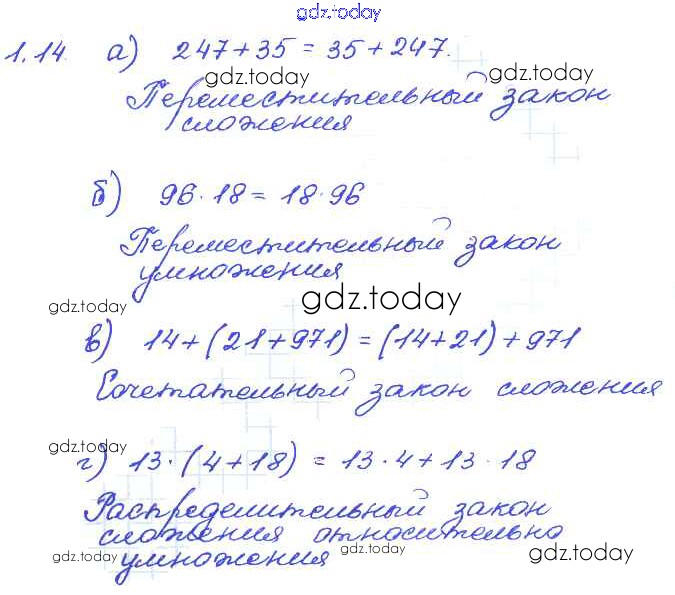 gdz.today
1.14. а) 247+35 = 35+247.
gdz.today gdz.today
Переместительный закон
сложения
б) 96·18 = 18·96
Переместительный закон
умножения
gdz.today gdz.today
в) 14+(21+971) = (14+21)+971
Сочетательный закон сложения
gdz.today
г) 13·(4+18) = 13·4+13·18
gdz.today gdz.today
Распределительный закон
сложения относительно
gdz.today gdz.today gdz.today
умножения